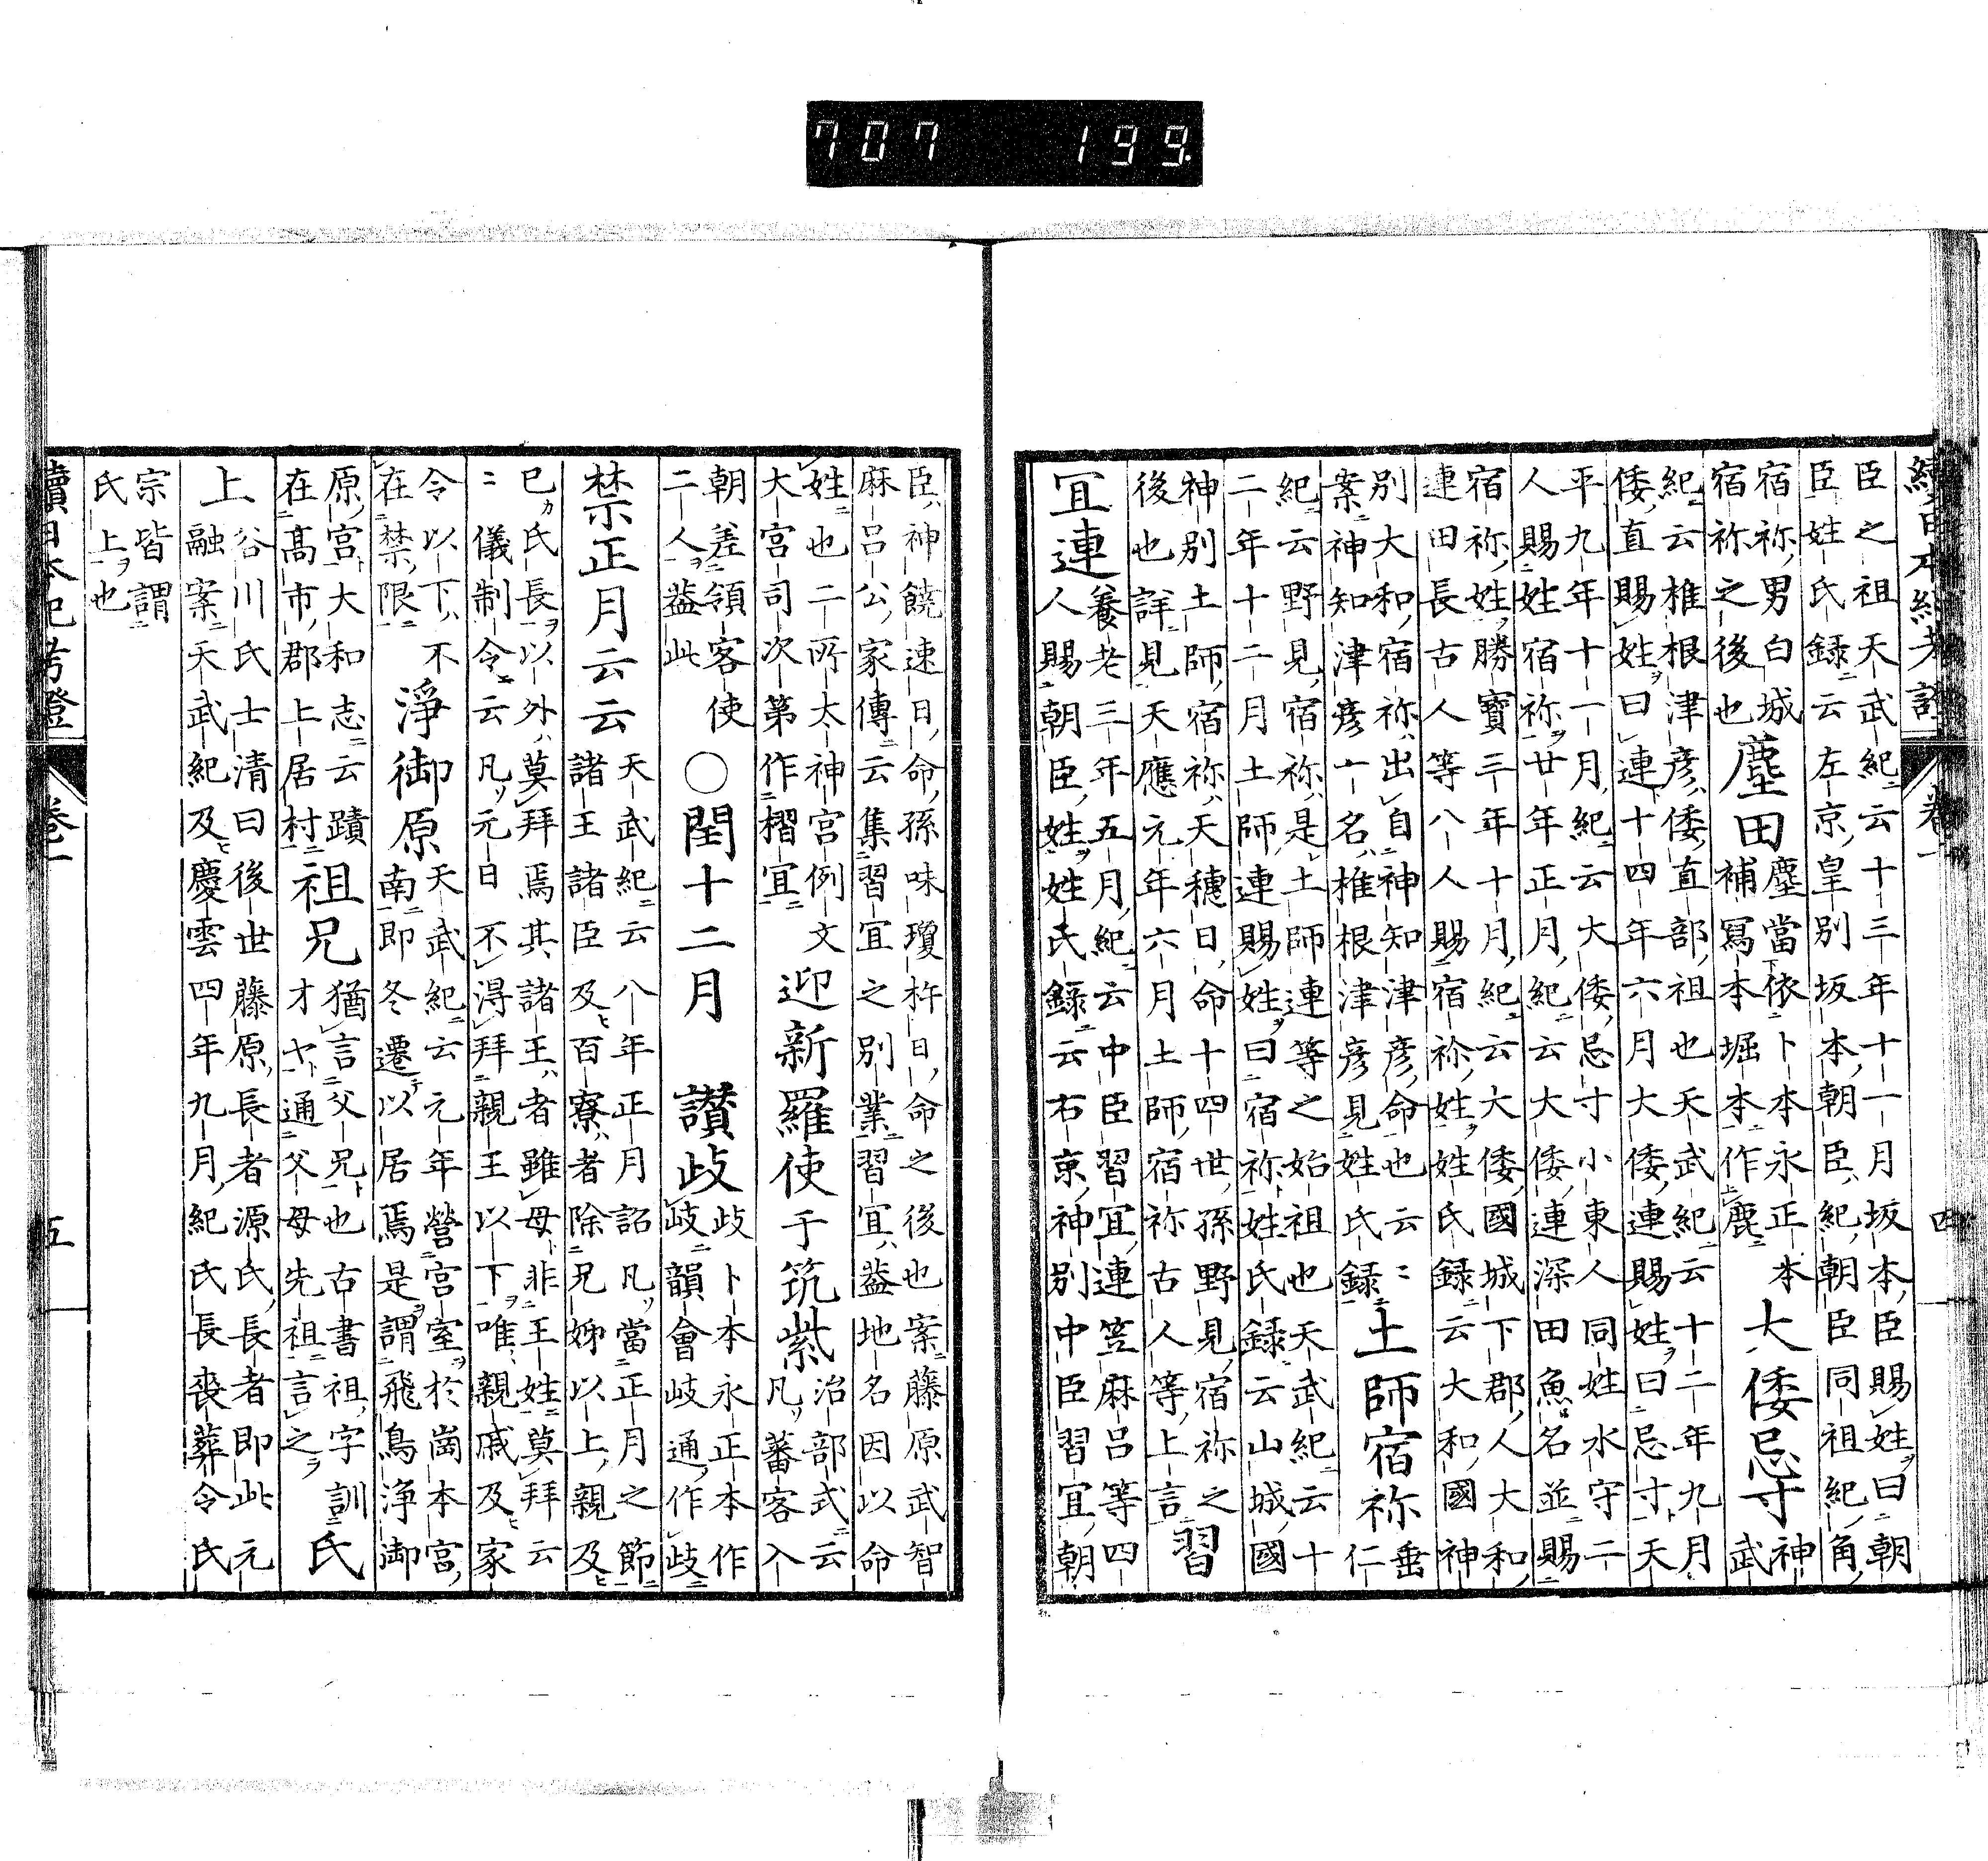 707 199
續日本紀考證 卷一 四
臣之祖天武紀云十三年十一月坂本臣賜姓曰朝
臣姓氏録云左京皇別坂本朝臣紀朝臣同祖紀角
宿祢男白城
宿祢之後也
塵田
塵當依卜本永正本
補寫本堀本作鹿
大倭忌寸
神
武
紀云椎根津彦倭直部祖也天武紀云十二年九月
倭直賜姓曰連十四年六月大倭連賜姓曰忌寸天
平九年十一月紀云大倭忌寸小東人同姓水守二
人賜姓宿祢廿年正月紀云大倭連深田魚名並賜
宿祢姓勝寶三年十月紀云大倭國城下郡人大和
連田長古人等八人賜宿祢姓姓氏録云大和國神
別大和宿祢出自神知津彦命也云〻
案神知津彦一名椎根津彦見姓氏録
土師宿祢
垂
仁
紀云野見宿祢是土師連等之始祖也天武紀云十
二年十二月土師連賜姓曰宿祢姓氏録云山城國
神別土師宿祢天穗日命十四世孫野見宿祢之
後也詳見天應元年六月土師宿祢古人等上言
習
宜連
養老三年五月紀云中臣習宜連笠麻呂等四
人賜朝臣姓姓氏録云右京神別中臣習宜朝
臣神饒速日命孫味瓊杵日命之後也案藤原武智
麻呂公家傳云集習宜之別業習宜蓋地名因以命
姓也二所太神宮例文
大宮司次第作褶宜
迎新羅使于筑紫
治部式云
凡蕃客入
朝差領客使
二人蓋此
○閏十二月
讃岐
歧卜本永正本作
岐韻會岐通作歧
禁正月云云
天武紀云八年正月詔凡當正月之節
諸王諸臣及百寮者除兄姊以上親及
已氏長以外莫拜焉其諸王者雖母非王姓莫拜云
〻儀制令云凡元日不得拜親王以下唯親戚及家
令以下不
在禁限
淨御原
天武紀云元年營宮室於崗本宮
南即冬遷以居焉是謂飛鳥淨御
原宮大和志云蹟
在髙市郡上居村
祖兄
猶言父兄也古書祖字訓
オヤ通父母先祖言之
氏
上
谷川氏士清曰後世藤原長者源氏長者即此元
融案天武紀及慶雲四年九月紀氏長喪葬令氏
宗皆謂
氏上也
續日本紀考證 卷一 五